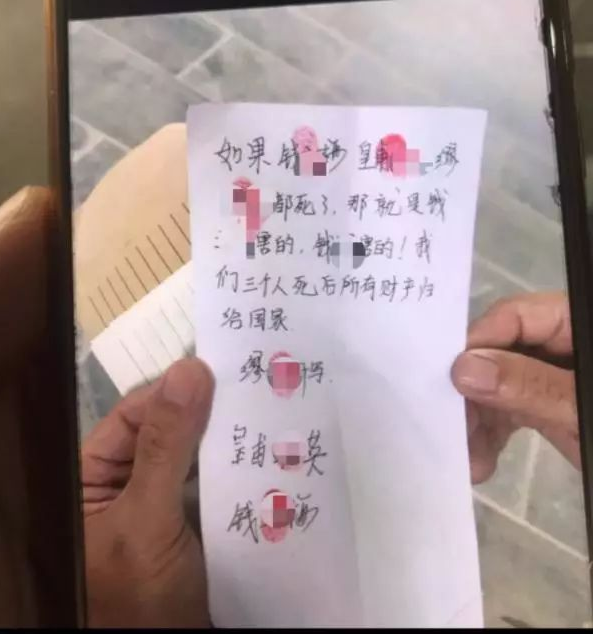 如果钱 海 皇甫 缪
都死了，那就是钱
害的，钱 害的！我
们三个人死后所有财产归
给国家
缪
皇甫 英
钱 海